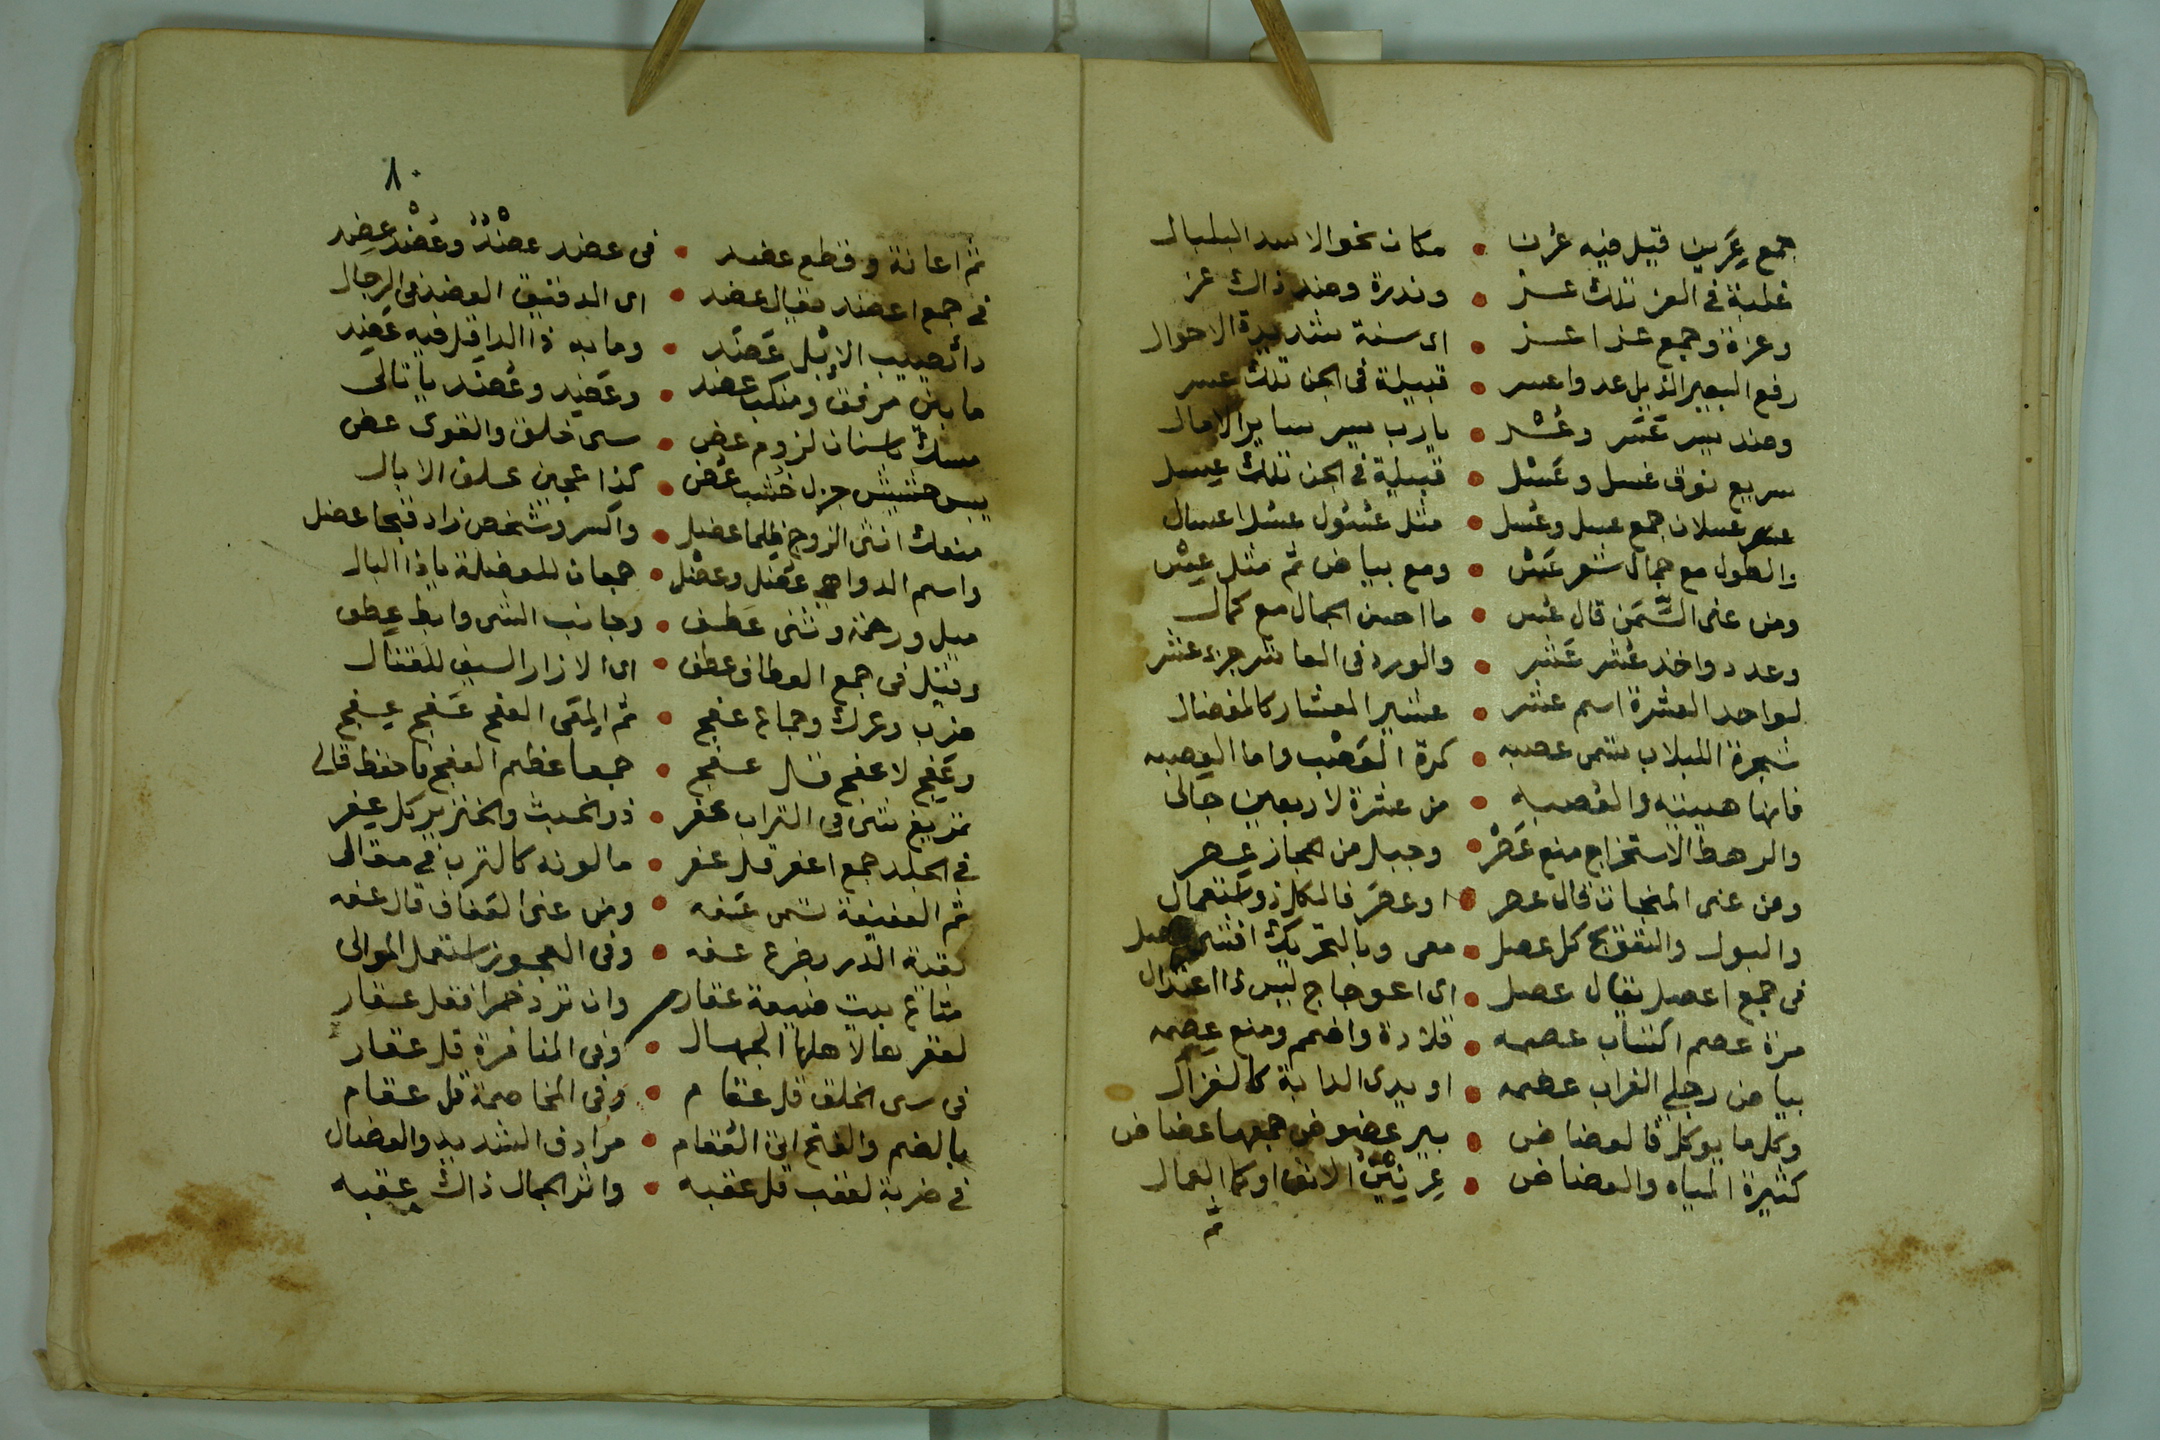 جمع عَرين قيل فيه عرن • مكان نحو الاسد البلبال
غلبة فى العز تلك عز • وندرة وضد ذاك عز
وعزة وجمع عزا عز • اى سنة شديدة الاحوال
رفع البعير الذيل عد واعسر • قبيلة فى الجن تلك عسر
وضد يسر عَسَر وعُسْر • يا رب يسر ساير الامال
سريع نوق عسل وعَسْل • قبيلة فى الجن تلك عِسل
عسلان جمع عسل وعُسل • مثل عسول عسل اعسال
والطول مع جمال شعر عَسْن • ومع بياض ثم مثل عِسْن
ومن عنى السَّمَن قال عُسن • ما احسن الجمال مع كمال
وعدد واخذ عُشر عَشر • والورد فى العاشر جزء عشر
لواحد العشرة اسم عشر • عشير المعشار كالمفضال
شجرة اللبلاب تسمى عصبه • كرة العَصْب واما العِصبه
فانها هيئته والعُصبه • من عشرة لاربعين جالى
والرهط الاستخراج منع عَصْر • وجبل من الحجاز عِصر
ومن عنى المنجات قال عصر • او عصَر فالكل ذو استعمال
والبول والتفويج كل عصل • معى وبالتحريك افتتى عصل
فى جمع اعصل يقال عصل • اى اعوجاج ليس ذا اعتدال
مرة عصم اكتساب عصمه • قلادة واضمم ومنع عِصمه
بياض رجلى الغراب عصمه • او يدى الدابة كالغزال
وكل ما يوكل فالعضاض • بير عضوض جمعها عضاض
كثيرة المياه والعضاض • عِرنِيْن الانف او كما العمال
ثم
٨٠
ثم اعانة وقطع عضد • فى عضد عضْدٌ وعُضْد عِضد
فى جمع اعضد يقال عضد • اى الدقيق العضد فى الرجال
داء يصيب الابل عَضَد • وما به ذا الدا قل فيه عَضِد
ما بين مرفق ومنكب عضد • وعَضِد وعُضد يا تالى
مسك باسنان لزوم عض • سىء خلق والقوى عض
يبس حشيش جزل خشب عُض • كذا عجين علف الابال
منعك انثى الزوج ظلما عضل • واكسر وشخص زاد قبحا عضل
واسم الدواهى عُضل وعضْل • جمعان للعضلة ياذا البال
ميل ورحمة وثنى عَطف • وجانب الشى وابط عِطف
وقيل فى جمع العطاف عطف • اى الازار السيف للقتال
ضرب وعرك وجماع عفج • ثم المِعَى العفج عَفج عِفج
وعَفِج لاعفج قل عفج • جمعا عظم العفج فاحفظ قالى
تمريغ شى فى التراب عفر • ذو الخبث والخنزير كل عِفر
فى الجلد جمع اعفر قل عفر • ما لونه كالترب فى مقالى
ثم العفيفة تسمى عَفه • ومن عنى العَفاف قال عفه
لقية الدر بضرع عفه • وفى العجوز استعمل الموالى
متاع بيت ضيعة عقار وان ترد خمرا فقل عقار
لعقرها لاهلها الجهال • وفى المنافرة قل عقار
فى سىء الخلق قل عقام • وفى المخاصمة قل عقام
بالضم والفتح اتى العُقام • مرادف الشديد والعضال
فى ضربة لعقب قل عقبه • واثر الجمال ذاك عِقبه